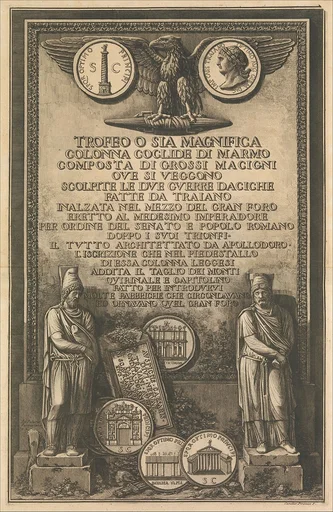 OPTIMO
PRINCIPI
S C
TROFEO O SIA MAGNIFICA
COLONNA COCLIDE DI MARMO
COMPOSTA DI GROSSI MACIGNI
OVE SI VEGGONO
SCOLPITE LE DVE GVERRE DACICHE
FATTE DA TRAIANO
INALZATA NEL MEZZO DEL GRAN FORO
ERETTO AL MEDESIMO IMPERADORE
PER ORDINE DEL SENATO E POPOLO ROMANO
DOPPO I SVOI TRIONFI·
IL TVTTO ARCHITETTATO DA APOLLODORO·
L'ISCRIZIONE CHE NEL PIEDESTALLO
DI ESSA COLONNA LEGGESI
ADDITA IL TAGLIO DEI MONTI
QVIRINALE E CAPITOLINO
FATTO PER INTRODVRVI
MOLTE FABBRICHE CHE CIRCONDAVANO
ED ORNAVANO QVEL GRAN FORO
S C
OPTIMO
OPTIMO PRINCIPI
S C